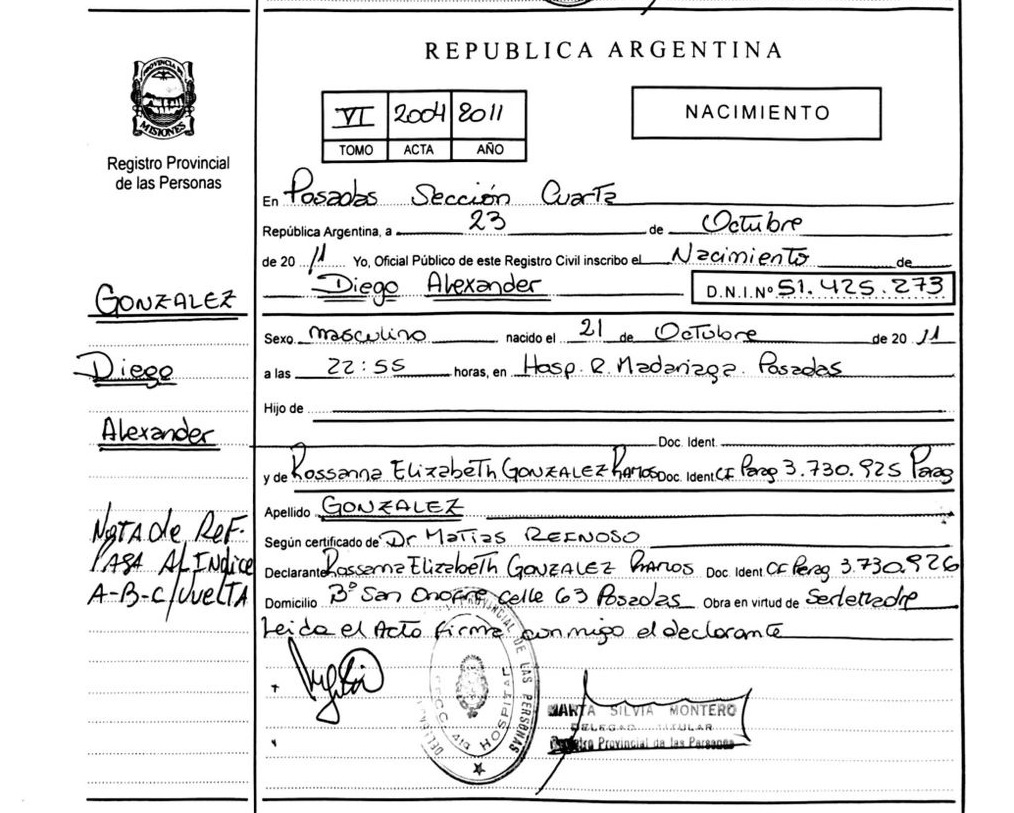 REPUBLICA ARGENTINA
PROVINCIA DE
MISIONES
Registro Provincial
de las Personas
VI 2004 2011
TOMO ACTA AÑO
NACIMIENTO
En Posadas Sección Cuarta
República Argentina, a 23 de Octubre
de 20 11 Yo, Oficial Público de este Registro Civil inscribo el Nacimiento de
Diego Alexander D.N.I.Nº 51.425.273
Sexo masculino nacido el 21 de Octubre de 20 11
a las 22:55 horas, en Hosp. R. Madariaga. Posadas
Hijo de
Doc. Ident.
y de Rossanna Elizabeth GONZALEZ RAMOS Doc. Ident CI Parag 3.730.925 Parag
Apellido GONZALEZ
Según certificado de Dr Matias REINOSO
Declarante Rossanna Elizabeth GONZALEZ RAMOS Doc. Ident CI Parag 3.730.926
Domicilio Bº San Onofre Calle 63 Posadas Obra en virtud de Ser la Madre
Leida el Acto firma conmigo el declarante
GONZALEZ
Diego
Alexander
NOTA de REF-
PASA AL INdice
A-B-C/VueLTA
PROVINCIAL DE LAS PERSONAS
HOSPITAL
MARTA SILVIA MONTERO
DELEGADO TITULAR
Registro Provincial de las Personas